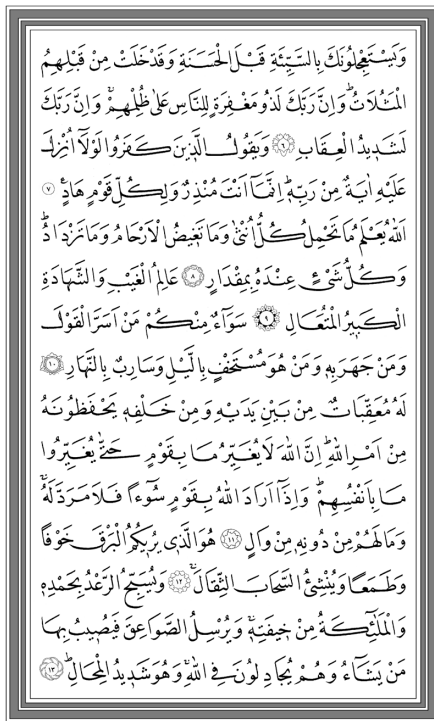 وَيَسْتَعْجِلُونَكَ بِالسَّيِّئَةِ قَبْلَ الْحَسَنَةِ وَقَدْ خَلَتْ مِنْ قَبْلِهِمُ
الْمَثُلَاتُۜ وَاِنَّ رَبَّكَ لَذُو مَغْفِرَةٍ لِلنَّاسِ عَلٰى ظُلْمِهِمْۚ وَاِنَّ رَبَّكَ
لَشَد۪يدُ الْعِقَابِ ٦ وَيَقُولُ الَّذ۪ينَ كَفَرُوا لَوْلَٓا اُنْزِلَ
عَلَيْهِ اٰيَةٌ مِنْ رَبِّه۪ۜ اِنَّمَٓا اَنْتَ مُنْذِرٌ وَلِكُلِّ قَوْمٍ هَادٍ۟ ٧
اَللّٰهُ يَعْلَمُ مَا تَحْمِلُ كُلُّ اُنْثٰى وَمَا تَغ۪يضُ الْاَرْحَامُ وَمَا تَزْدَادُۜ
وَكُلُّ شَيْءٍ عِنْدَهُ بِمِقْدَارٍ ٨ عَالِمُ الْغَيْبِ وَالشَّهَادَةِ
الْكَب۪يرُ الْمُتَعَالِ ٩ سَوَٓاءٌ مِنْكُمْ مَنْ اَسَرَّ الْقَوْلَ
وَمَنْ جَهَرَ بِه۪ وَمَنْ هُوَ مُسْتَخْفٍ بِالَّيْلِ وَسَارِبٌ بِالنَّهَارِ ١٠
لَهُ مُعَقِّبَاتٌ مِنْ بَيْنِ يَدَيْهِ وَمِنْ خَلْفِه۪ يَحْفَظُونَهُ
مِنْ اَمْرِ اللّٰهِۜ اِنَّ اللّٰهَ لَا يُغَيِّرُ مَا بِقَوْمٍ حَتّٰى يُغَيِّرُوا
مَا بِاَنْفُسِهِمْۜ وَاِذَٓا اَرَادَ اللّٰهُ بِقَوْمٍ سُٓوءًا فَلَا مَرَدَّ لَهُۚ
وَمَا لَهُمْ مِنْ دُونِه۪ مِنْ وَالٍ ١١ هُوَ الَّذ۪ي يُر۪يكُمُ الْبَرْقَ خَوْفًا
وَطَمَعًا وَيُنْشِئُ السَّحَابَ الثِّقَالَۚ ١٢ وَيُسَبِّحُ الرَّعْدُ بِحَمْدِه۪
وَالْمَلٰٓئِكَةُ مِنْ خ۪يفَتِه۪ۚ وَيُرْسِلُ الصَّوَاعِقَ فَيُص۪يبُ بِهَا
مَنْ يَشَٓاءُ وَهُمْ يُجَادِلُونَ فِي اللّٰهِۚ وَهُوَ شَد۪يدُ الْمِحَالِۜ ١٣